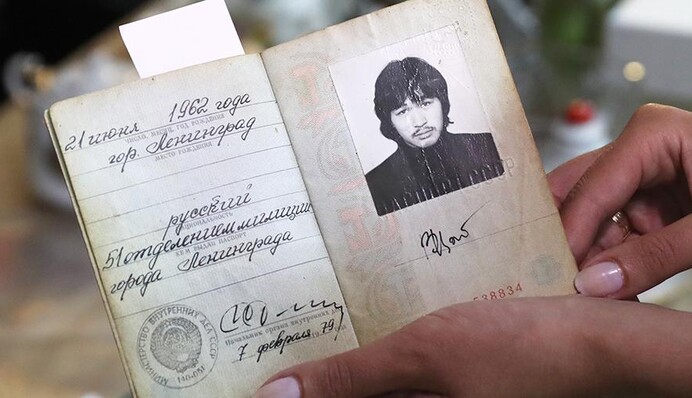 21 июня 1962 года
ЧИСЛО, МЕСЯЦ, ГОД РОЖДЕНИЯ
гор. Ленинград
МЕСТО РОЖДЕНИЯ
русский
НАЦИОНАЛЬНОСТЬ
51 отделением милиции
КЕМ ВЫДАН ПАСПОРТ
города Ленинграда
Начальник органа внутренних дел
7 февраля 1979
МИНИСТЕРСТВО ВНУТРЕННИХ ДЕЛ СССР
538834